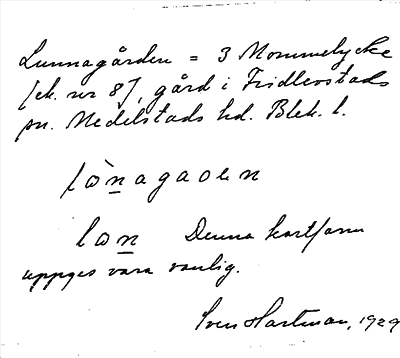 Lunnagården = 3 Mommelycke
[ek. nr 8], gård i Fridlevstads
sn. Medelstads hd. Blek. l.
lò̱nagaoen
lon Denna kortform
uppges vara vanlig.
Sven Hartman, 1929